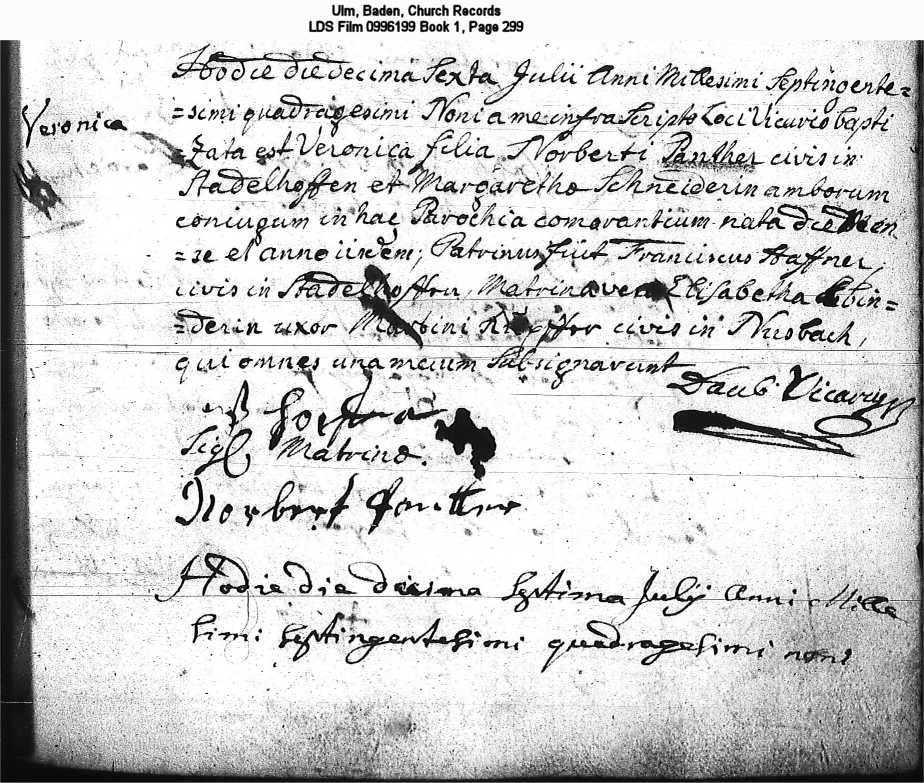 Ulm, Baden, Church Records
LDS Film 0996199 Book 1, Page 299
Hodie die decima Sexta Julii Anni Millesimi Septingente=
=simi quadragesimi Noni a me infra Scripto Loci Vicario bapti
Veronica
=zata est Veronica filia Norberti Panther civis in
Stadelhoffen et Margarethæ Schneiderin amborum
coniugum in hac Parochia comorantium nata die
=se et anno iisdem, Patrinus fuit Franciscus Haffner,
civis in Stadelhoffen, Matrina vero Elisabetha
=derin uxor Martini civis in Nusbach,
qui omnes una mecum Subsignarunt
Daub Vicarius
Sig Matrinæ.
Norbert Panther
Hodie die decima Septima Julÿ Anni Mille
simi septingentesimi quadragesimi noni